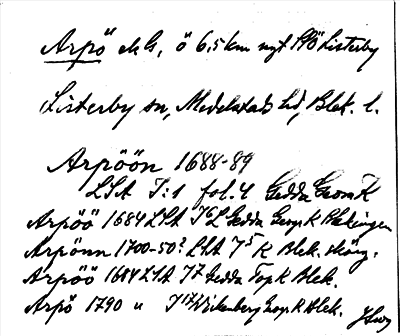 Arpö ekG, ö 6.5 km nyt PÖ Listerby
Listerby sn, Medelstads hd, Blek. l.
Arpöön 1688-89
LSA I:1 fol. 4 Gedda Geom K
Arpöö 1684 LSA Gedda Geogr. K Blekingen
Arpönn 1700-50? LSA K Blek. skärg.
Arpöö 1684 LSA I7 Gedda Top K Blek.
Arpö 1790 u I17 Wikenberg Geogr. K Blek.